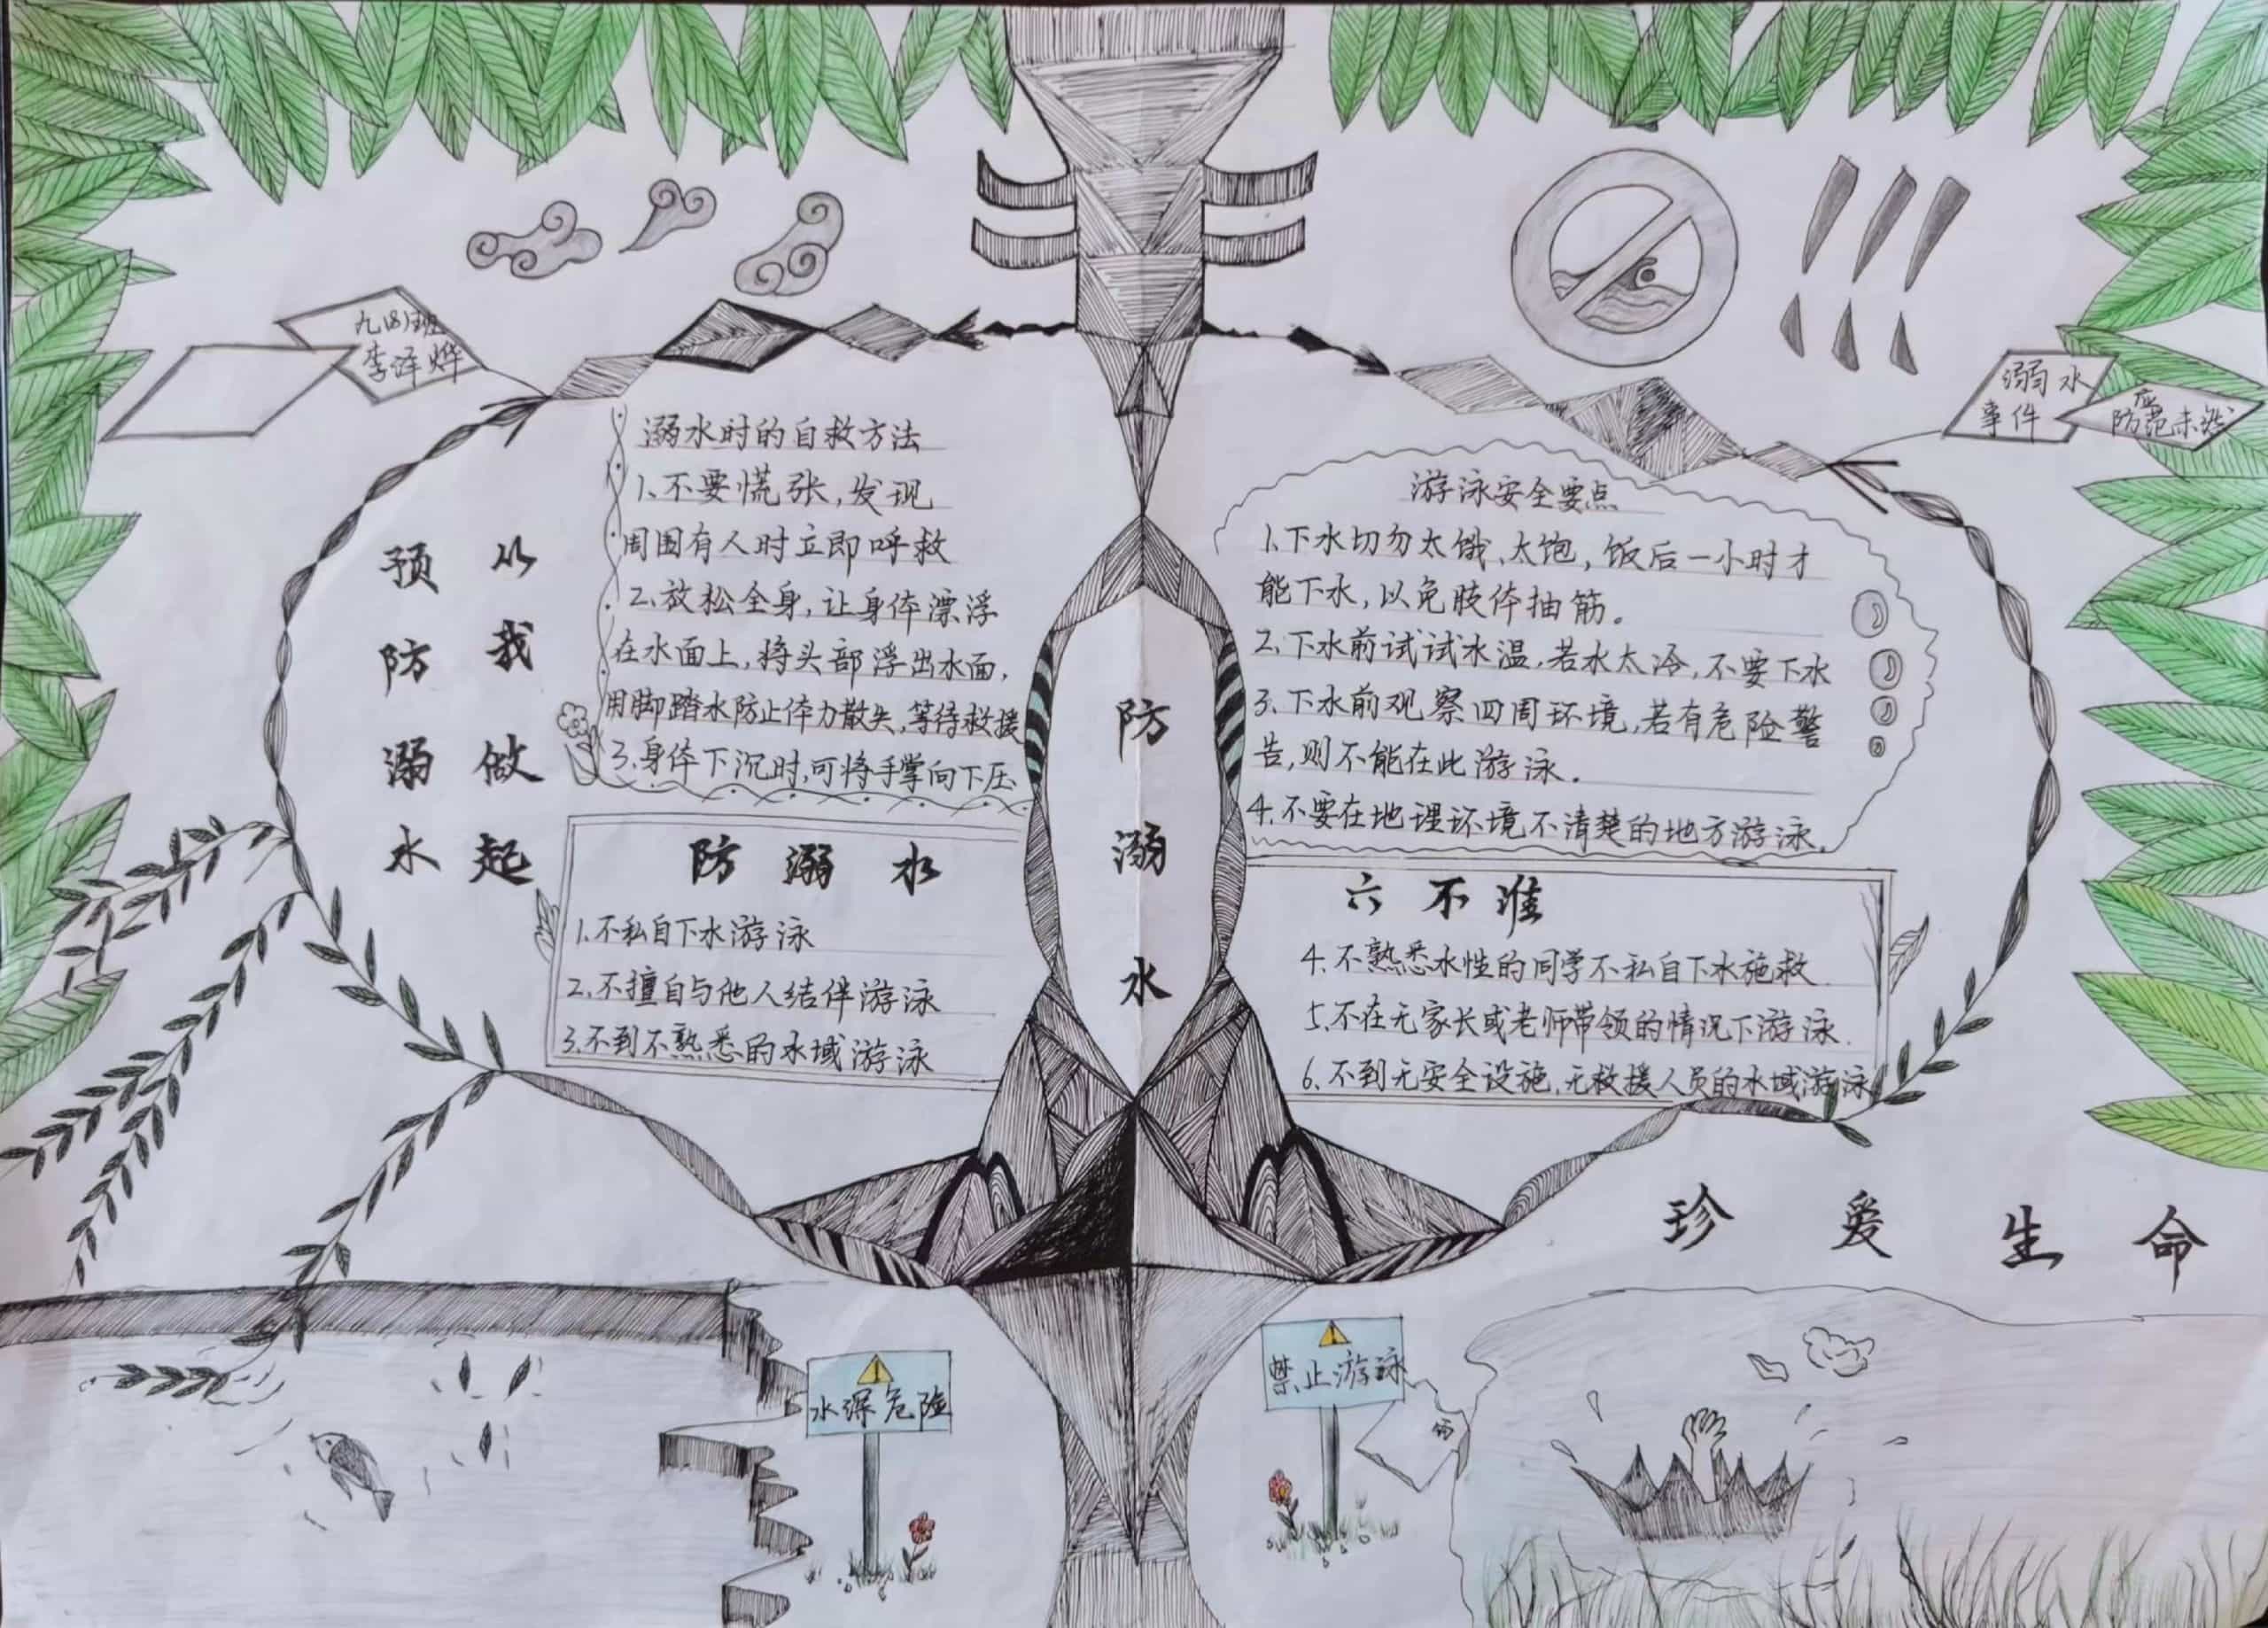 九(8)班
李泽烨
溺水
事件
应
防范未然
预防溺水
从我做起
溺水时的自救方法
1、不要慌张,发现
周围有人时立即呼救
2、放松全身,让身体漂浮
在水面上,将头部浮出水面,
用脚踏水防止体力散失,等待救援
3、身体下沉时,可将手掌向下压
防溺水
游泳安全要点
1、下水切勿太饿、太饱,饭后一小时才
能下水,以免肢体抽筋。
2、下水前试试水温,若水太冷,不要下水
3、下水前观察四周环境,若有危险警
告,则不能在此游泳。
4、不要在地理环境不清楚的地方游泳。
防溺水
1、不私自下水游泳
2、不擅自与他人结伴游泳
3、不到不熟悉的水域游泳
六不准
4、不熟悉水性的同学不私自下水施救
5、不在无家长或老师带领的情况下游泳.
6、不到无安全设施,无救援人员的水域游泳
珍爱生命
水深危险
禁止游泳